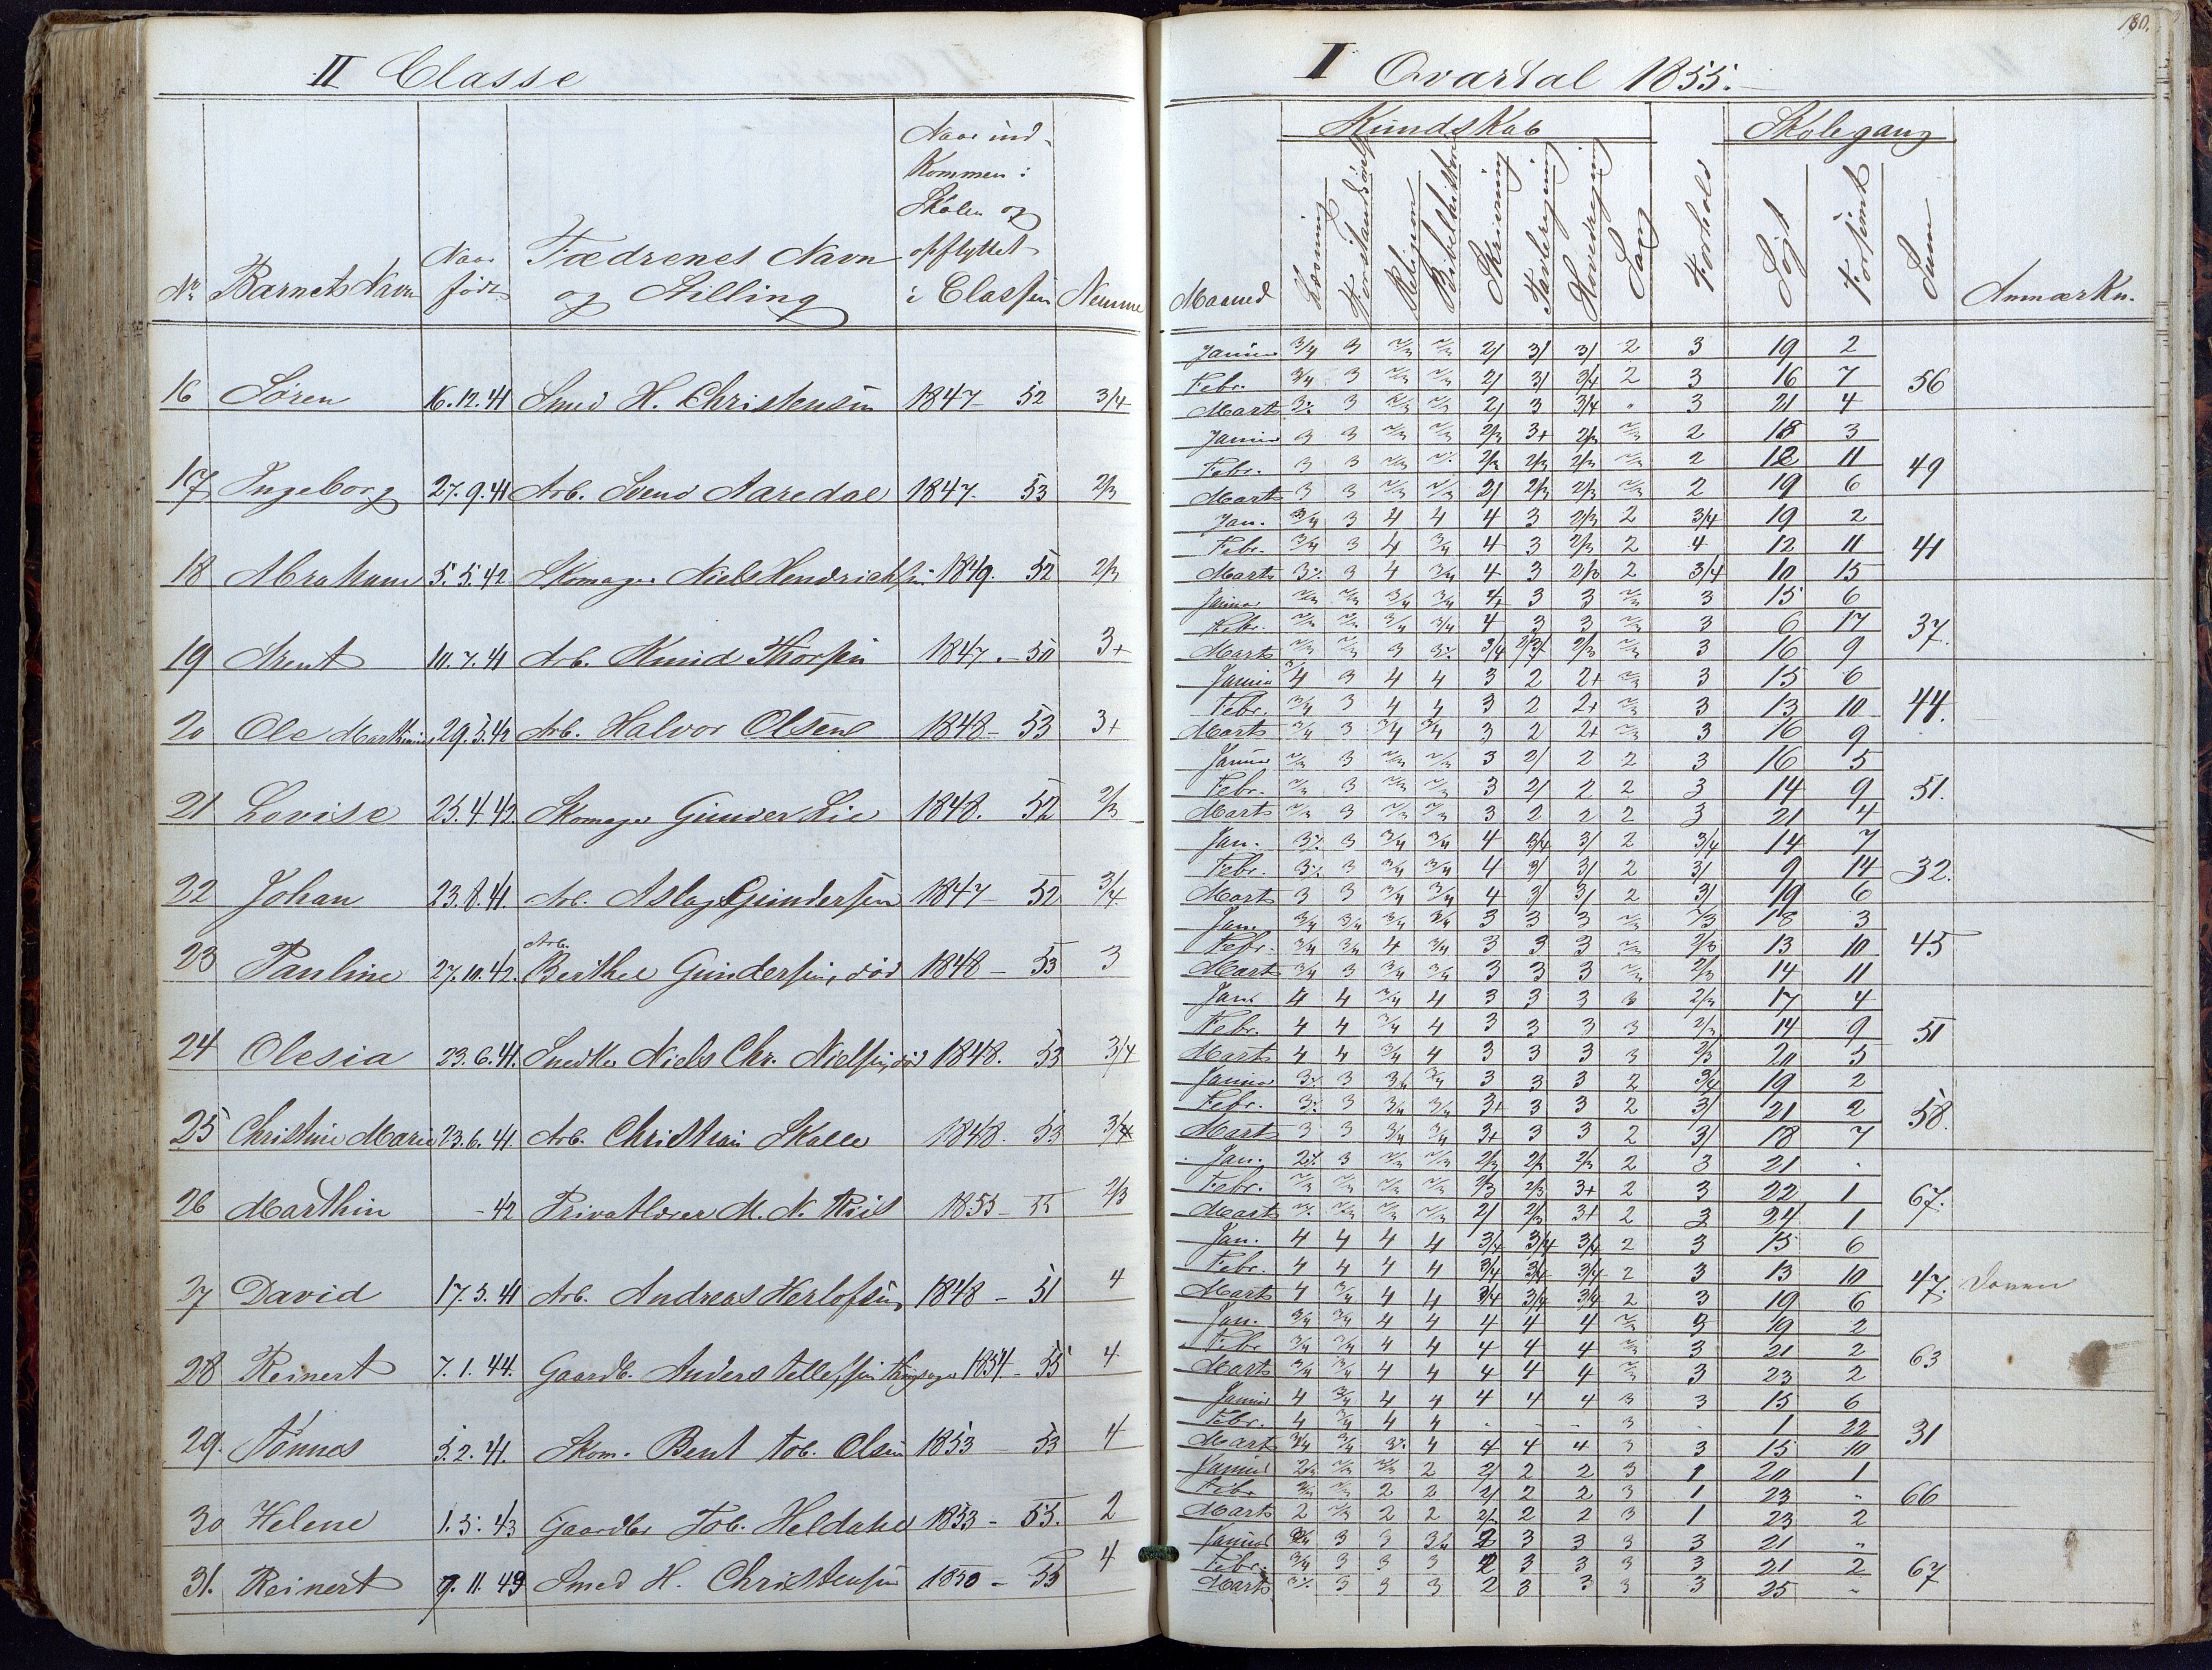 180.
II Classe
I Qvartal 1855.
No Barnets Navn Naar født Fædrenes Navn og Stilling Naar ind- kommen i Skolen og opflyttet i Classen Nemme
Maaned Kundskab Skolegang
Læsning Forstandsøvelse Religion Bibelhistorie Skrivning Tavleregning Hovedregning Sang Forhold Søgt Forsømt Sum Anmærkn.
16 Søren 16.12.41 Smed H. Christensen 1847 - 52 3/4
Januar 3/4 3 2/3 2/3 2/ 3/ 3/ 2 3 19 2
Febr. 3/4 3 2/3 2/3 2/ 3/ 3/4 2 3 16 7 56
Marts 3 2/3 2/3 2/ 3 3/4 " 3 21 4
17 Ingeborg 27.9.41 Arb. Svend Aaredal 1847. 53 2/3
Januar 3 3 2/3 2/3 2/3 3+ 2/3 2/3 2 18 3
Febr. 3 3 2/3 2/3 2/3 2/3 2/3 2 12 11 49
Marts 3 3 2/3 2/3 2/ 2/3 2/3 2/3 2 19 6
18 Abraham 5.5.42 Skomager Niels Hendrichsen 1849. 52 2/3
Jan. 3/4 3 4 4 4 3 2/3 2 3/4 19 2
Febr. 3/4 3 4 3/4 4 3 2/3 2 4 12 11 41
Marts 3 4 3/4 4 3 2/3 2 3/4 10 15
19 Arent 10.7.41 Arb. Knud Thorsen 1847. - 50 3+
Januar 2/3 2/3 3/4 3/4 4+ 3 3 2/3 3 15 6
Febr. 2/3 2/3 3/4 3/4 4 3 3 2/3 3 6 17 37.
Marts 2/3 2/3 3 3/4 2/3 2/3 3 16 9
20 Ole 29.5.42 Arb. Halvor Olsen 1848 - 53 3+
Januar 3/4 3 4 4 3 2 2+ 2/3 3 15 6
Febr. 3/4 3 4 4 3 2 2+ 2/3 3 13 10 44.
Marts 3/4 3 3/4 3/4 3 2 2+ 2/3 3 16 9
21 Lovise 25.4.42. Skomager Gunder Lie 1848. 52 2/3
Januar 2/3 3 2/3 2/3 3 2/ 2 2 3 16 5
Febr. 2/3 3 2/3 2/3 3 2/ 2 2 3 14 9 51.
Marts 2/3 3 2/3 2/3 3 2 2 2 3 21 4
22 Johan 23.8.41. Arb. Aslag Gundersen 1847 - 52 3/4
Jan. 3 3/4 3/4 4 3/4 3/ 2 3/4 14 7
Febr. 3 3/4 3/4 4 3/ 3/ 2 3/ 9 14 32.
Marts 3 3 3/4 3/4 4 3/ 3/ 2 3/ 19 6
23 Pauline 27.10.42. Arb. Berthel Gundersen, død 1848 - 53 3
Jan. 3/4 3/4 3/4 3/4 3 3 3 2/3 2/3 18 3
Febr. 3/4 3/4 4 3/4 3 3 3 2/3 2/3 13 10 45
Marts 3/4 3 3/4 3/4 3 3 3 2/3 2/3 14 11
24 Olesia 23.6.41. Snedker Niels Chr. Nielsen, død 1848. 53 3/4
Jan. 4 4 3/4 4 3 3 3 3 2/3 17 4
Febr. 4 4 3/4 4 3 3 3 3 2/3 14 9 51
Marts 4 4 3/4 4 3 3 3 3 2/3 20 5
25 Christine Marie 23.6.41. Arb. Christian Skalle 1848. 53 3/4
Januar 3 3/4 3/4 3 3 3 2 3/4 19 2
Febr. 3 3/4 3/4 3+ 3 3 2 3/ 21 2 58.
Marts 3 3 3/4 3/4 3+ 3 3 2 3/ 18 7
26 Marthin - 42 Privatlærer M. N. Riis 1855 - 55 2/3
Jan. 3 2/3 2/3 2/3 2/3 2/3 2 3 21 -
Febr. 2/3 2/3 2/3 2/3 2/3 2/3 3+ 2 3 22 1 67.
Marts 2/3 2/3 2/3 2/ 2/3 3+ 2 3 24 1
27 David 17.3.41 Arb. Andreas Herlofsen 1848 - 51 4
Jan. 4 4 4 4 3/4 3/4 3/4 2 3 15 6
Febr. 4 4 4 4 3/4 3/4 3/4 2 3 13 10 47.
Marts 4 3/4 4 4 3/4 3/4 3/4 2 3 19 6
28 Reinert 7.1.44. Gaardb. Anders Tellefsen 1854 - 55 4
Jan. 3/4 3/4 4 4 4 4 4 2/3 3 19 2
Febr 3/4 3/4 4 4 4 4 4 2/3 3 21 2 63
Marts 3/4 3/4 4 4 4 4 4 2/3 3 23 2
29. Tønnes 5.2.41. Skom. Bent Tob. Olsen 1853 53 4
Januar 4 3/4 4 4 4 4 4 3 3 15 6
Febr. 4 3/4 4 4 - - - 3 - 1 22 31
Marts 3/4 3/4 4 4 4 4 3 3 15 10
30 Helene 1.5.43 Gaardbr Tob. Heldahl 1853 - 55. 2
Januar 2/3 2/3 2 2/ 2 2 3 1 20 1
Febr 2/3 2 2 2/ 2 2 3 1 23 " 66
Marts 2 2/3 2 2 2/ 2 2 3 1 23 2
31. Reinert 9.11.43 Smed H. Christensen 1850 - 55 4
Januar 3/4 3 3 2 3 3 3 3 21 "
Febr. 3/4 3 3 3 2 3 3 3 3 21 2 67
Marts 3 3 3 2 3 3 3 3 25 "